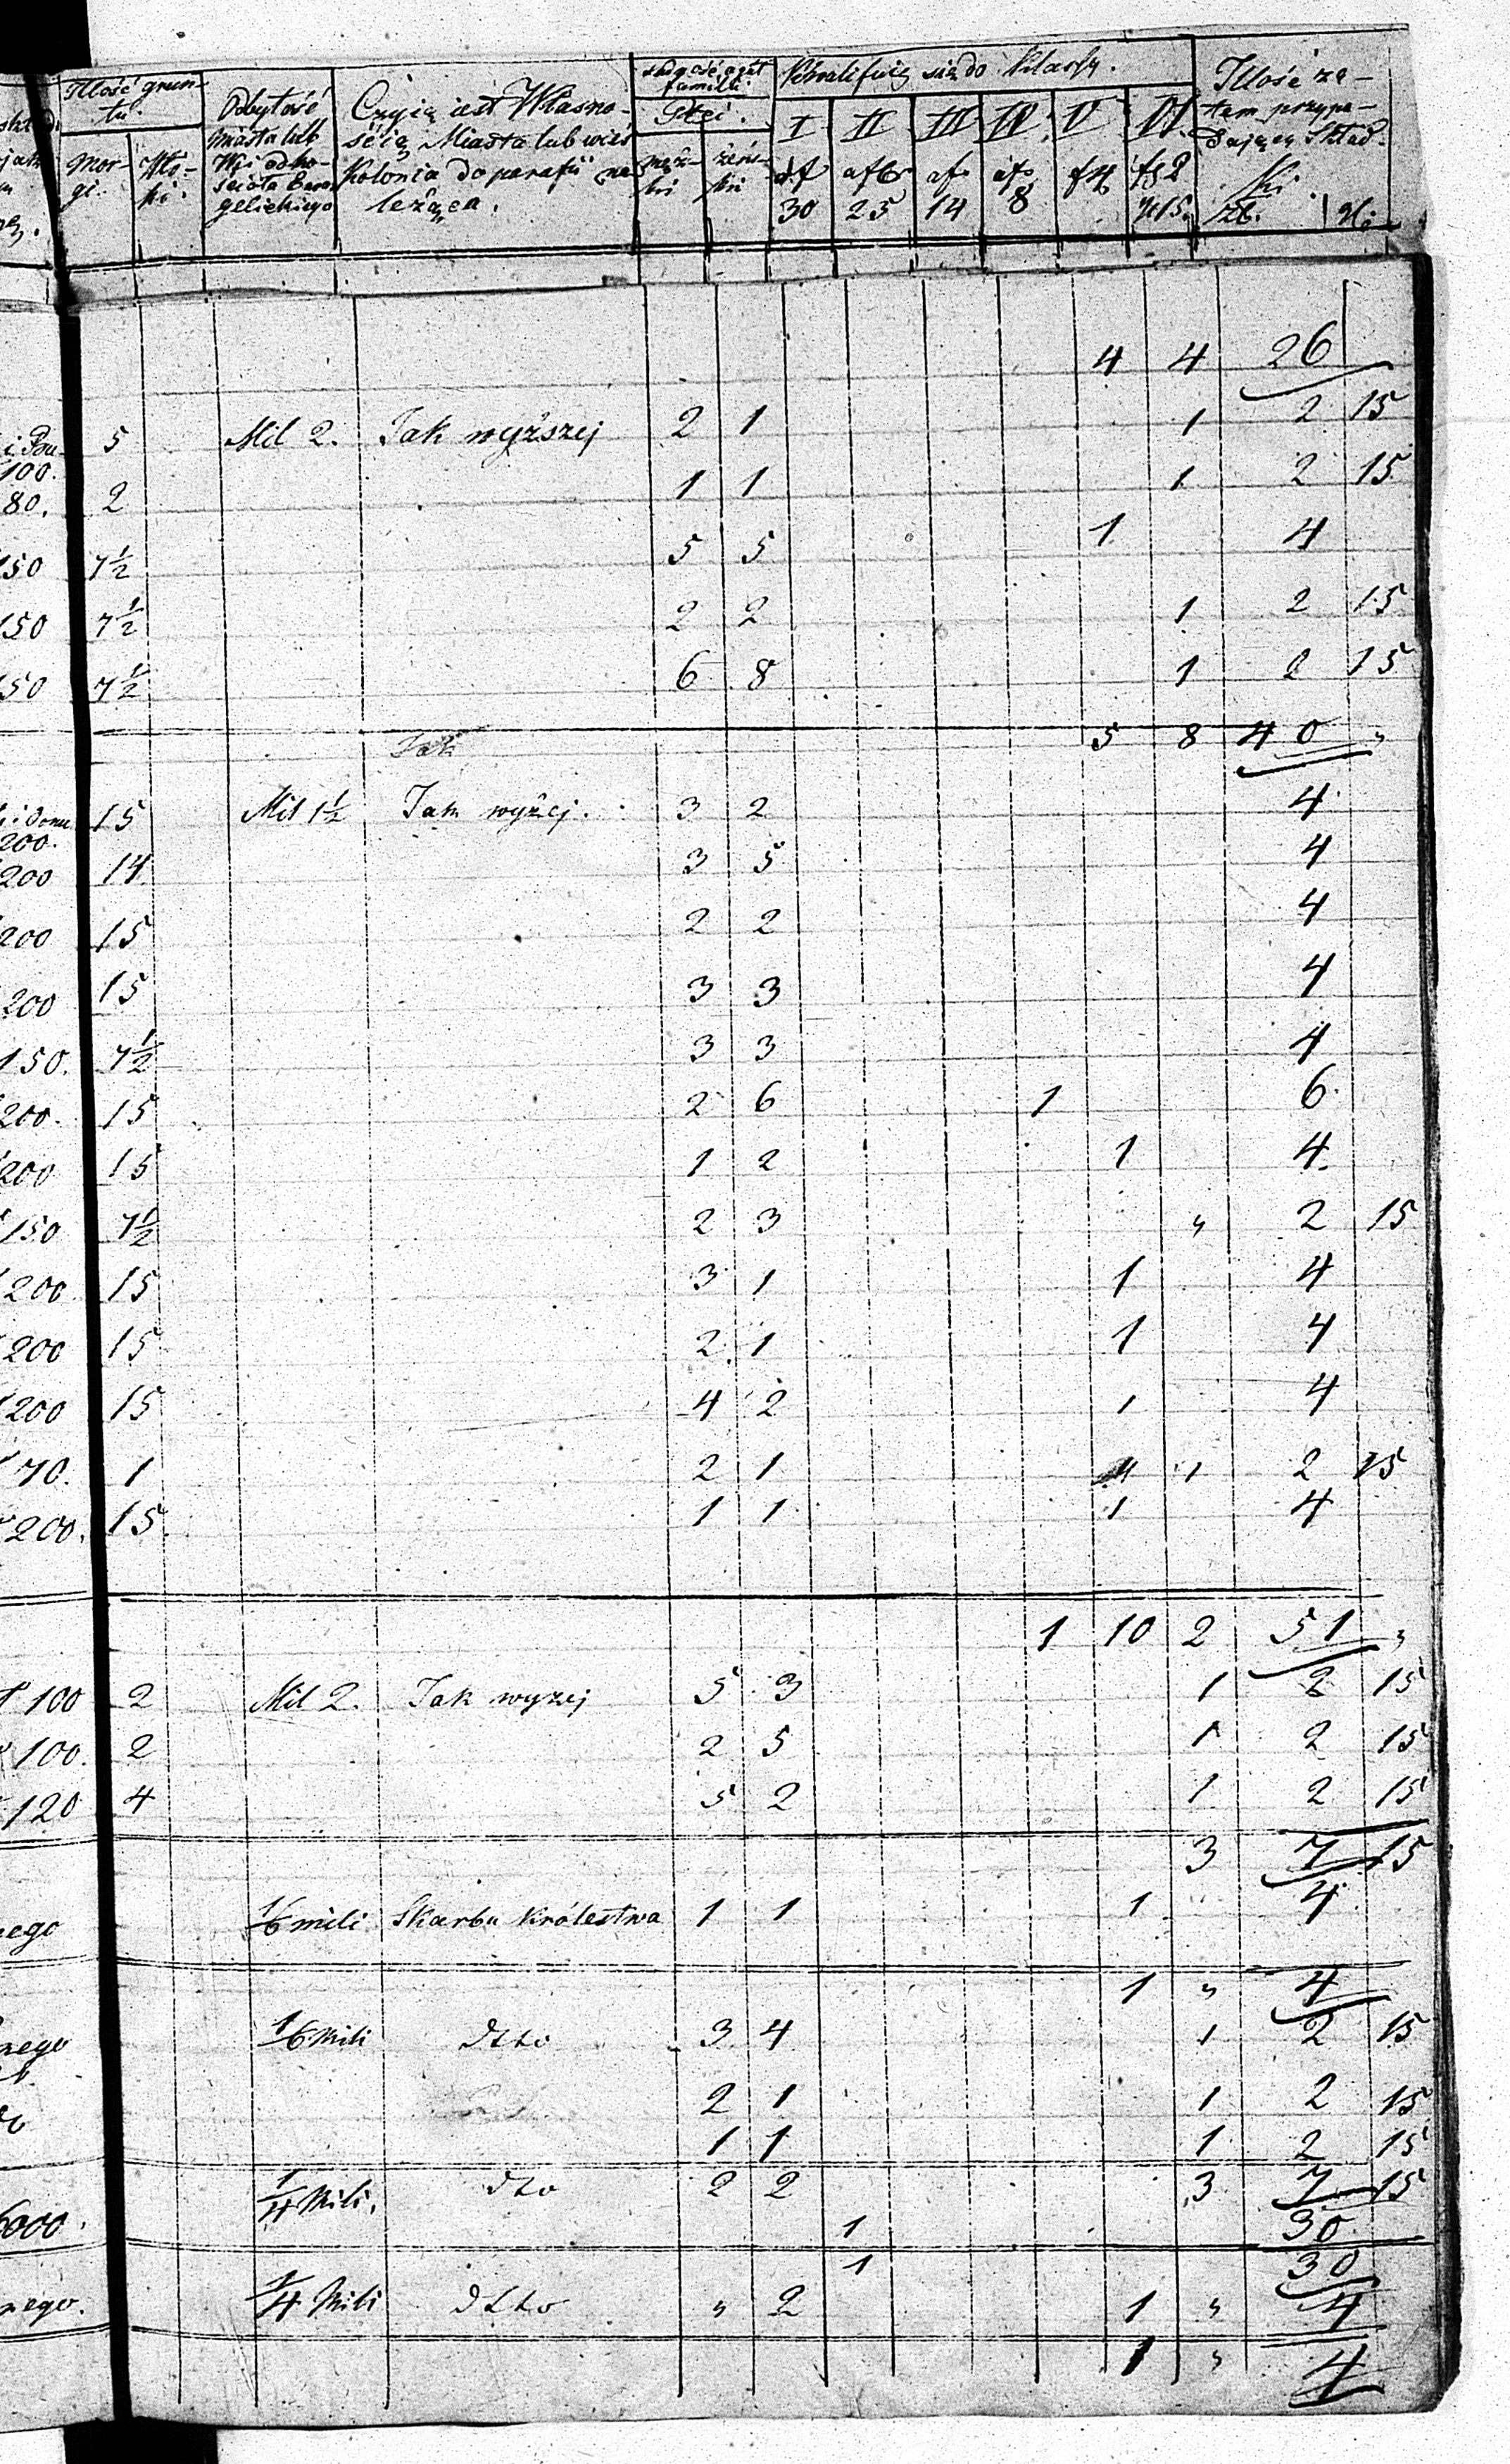 Illość grun-
tu.
Mor-
gi.
Odbytość
miasta lub
Wsi od ko-
ścioła Ewan
gelickiego
Czyją iest Własno-
ścią Miasta lub wieś
Kolonia do parafii na
leżąca.
familii.
Płci.
męz-
ki
żeńs-
ki
Kwalifuią się do Klassy.
I II III IV V VI
30 25 14 8
Illość za-
tem przypa-
dającey Skład-
ki
4 4 26
5 Mil 2. Jak wyższej 2 1 1 2 15
100.
80. 2 1 1 1 2 15
150 7½ 5 5 1 4
150 7½ 2 2 1 2 15
50 7½ 6 8 1 2 15
Jak 5 8 40 "
15 Mil 1½ Jak wyżej. 3 2 4
200.
200 14 3 5 4
200 15 2 2 4
200 15 3 3 4
150. 7½ 3 3 4
200. 15 2 6 1 6
200 15 1 2 1 4
150 7½ 2 3 " 2 15
200 15 3 1 1 4
200 15 2 1 1 4
200 15 4 2 1 4
70. 1 2 1 1 2 15
200. 15 1 1 1 4
1 10 2 51 "
100 2 Mil 2. Jak wyżej 5 3 1 2 15
100. 2 2 5 1 2 15
120 4 5 2 1 2 15
3 7 15
nego 1/6 mili Skarbu Królestwa 1 1 1 4
1 " 4
nego 1/6 Mili dtto 3 4 1 2 15
2 1 1 2 15
1 1 1 2 15
1/4 Mili. dto 2 2 3 7 15
6000. 1 30
1 30
nego. 1/4 Mili dtto " 2 1 " 4
1 " 4